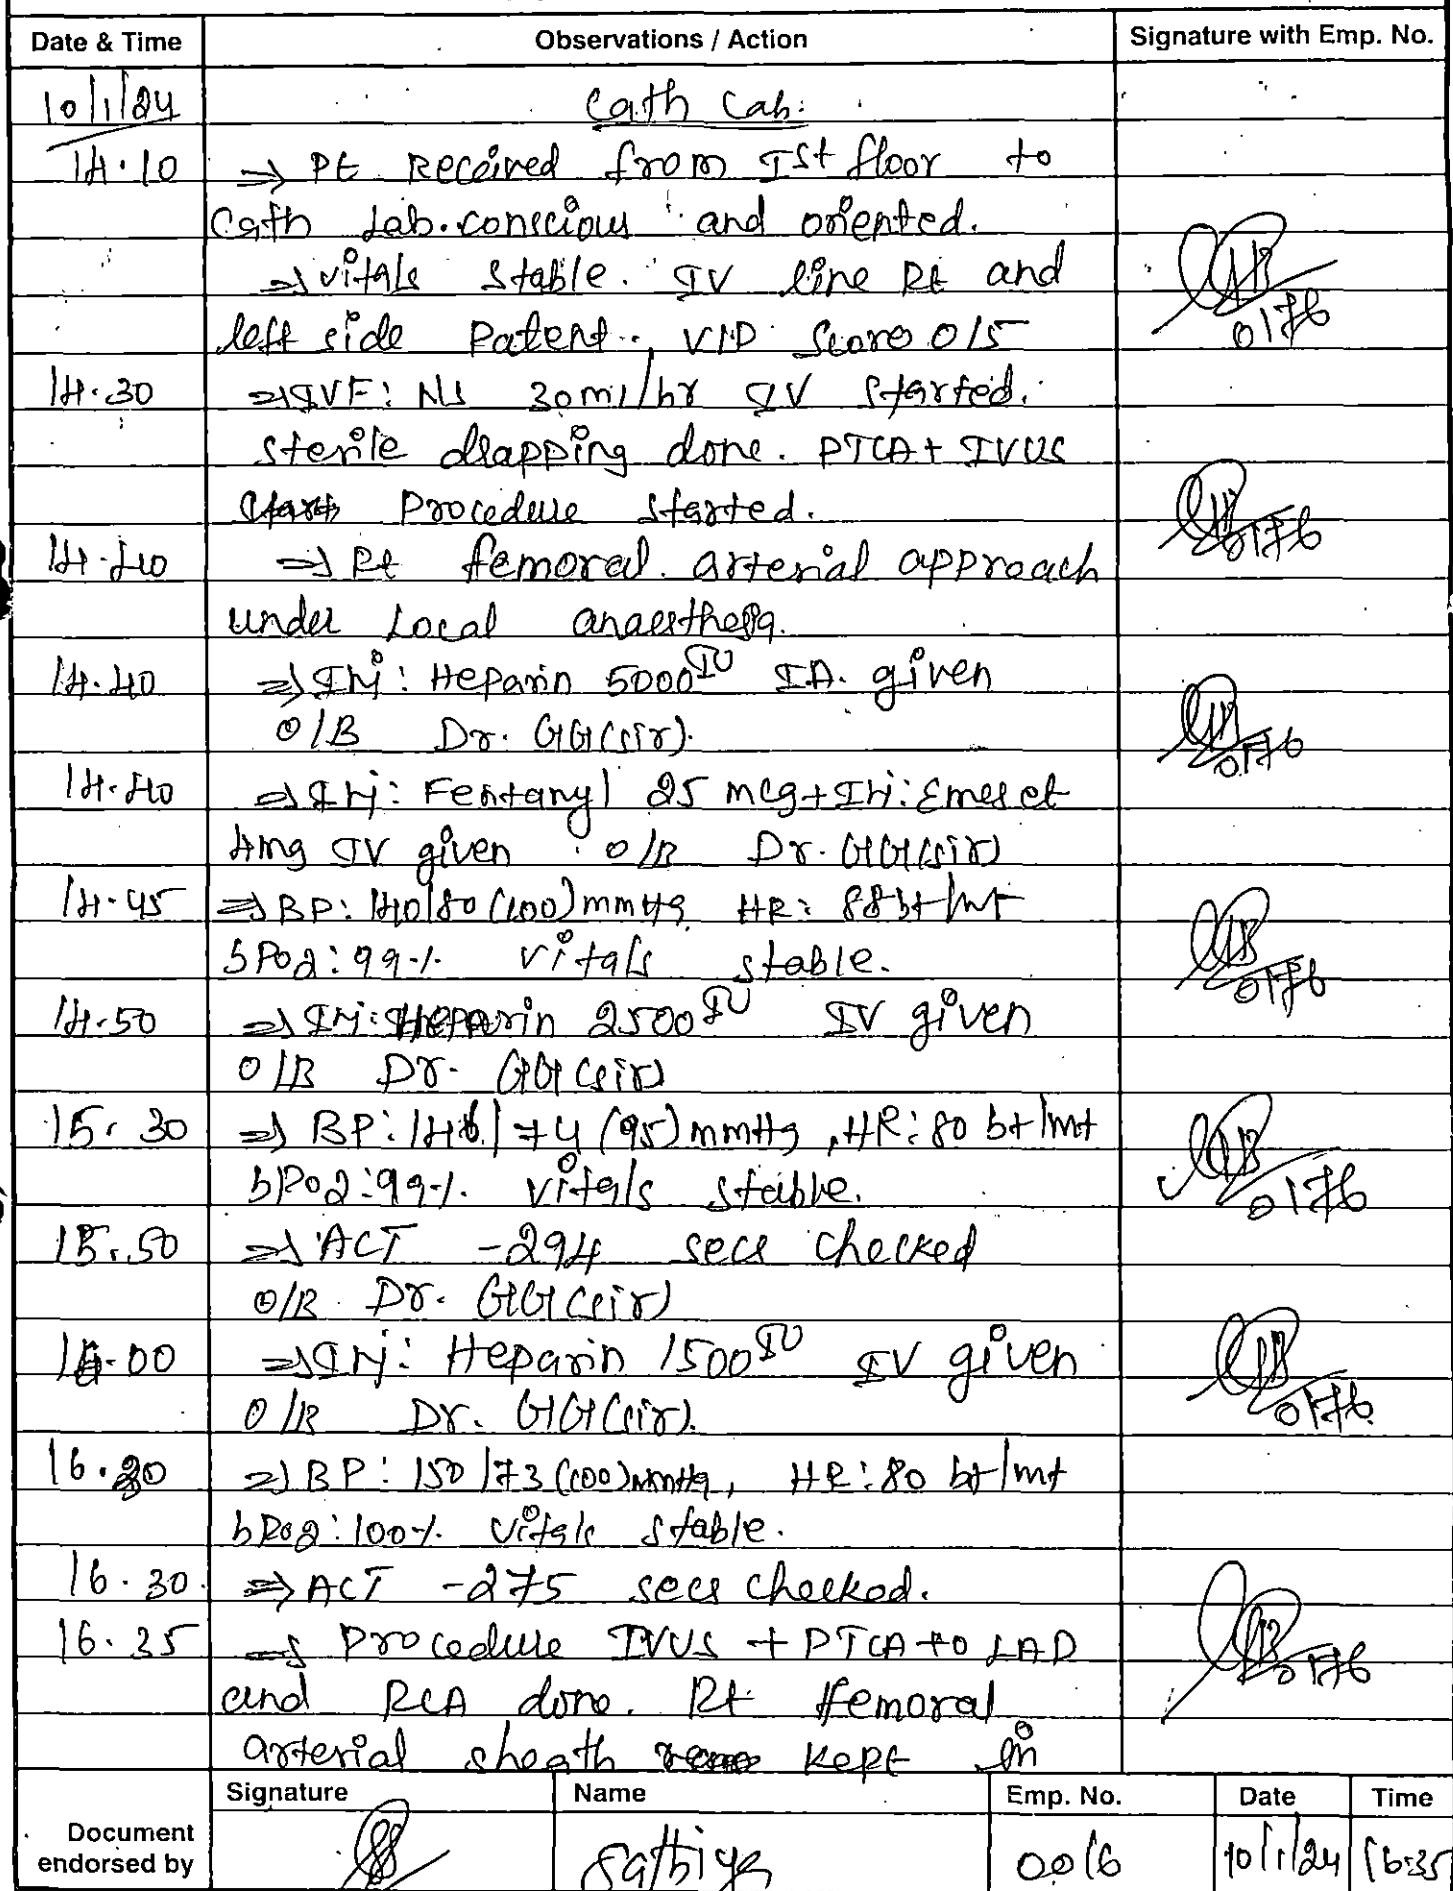 Date & Time Observations / Action Signature with Emp. No.
10/1/24 Cath Lab:
14.10 ⇒ Pt Received from Ist floor to
Cath Lab. conscious and oriented.
⇒ vitals stable. IV line Rt and
left side Patent., VIP Score 0/5
0176
14.30 ⇒ IVF: NS 30ml/hr IV Started.
Sterile drapping done. PTCA + IVUS
Procedure started.
0176
14.40 ⇒ Rt femoral. arterial approach
under Local anaesthesia.
14.40 ⇒ Inj: Heparin 5000IU IA. given
O/B Dr. GG(sir).
0176
14.40 ⇒ Inj: Fentanyl 25 mcg + Inj: Emeset
4mg IV given O/B Dr. GG(sir)
14.45 ⇒ BP: 140/80 (100)mmHg HR: 88bt/mt
SPO2: 99% vitals stable.
0176
14.50 ⇒ Inj: Heparin 2500IU IV given
O/B Dr. GG(sir)
15.30 ⇒ BP: /74 (95)mmHg, HR: 80 bt/mt
SPO2: 99% vitals stable.
0176
15.50 ⇒ ACT -294 secs checked
O/B Dr. GG(sir)
16.00 ⇒ Inj: Heparin 1500IU IV given
O/B Dr. GG(sir).
0176
⇒ BP: 150/73 (100)mmHg, HR: 80 bt/mt
SPO2: 100% vitals stable.
16.30. ⇒ ACT -275 secs checked.
16.35 ⇒ Procedure IVUS + PTCA to LAD
and RCA done. Rt femoral
0176
arterial sheath kept in
Signature Name Emp. No. Date Time
Document
endorsed by Sathiya 0016 10/1/24 16:35